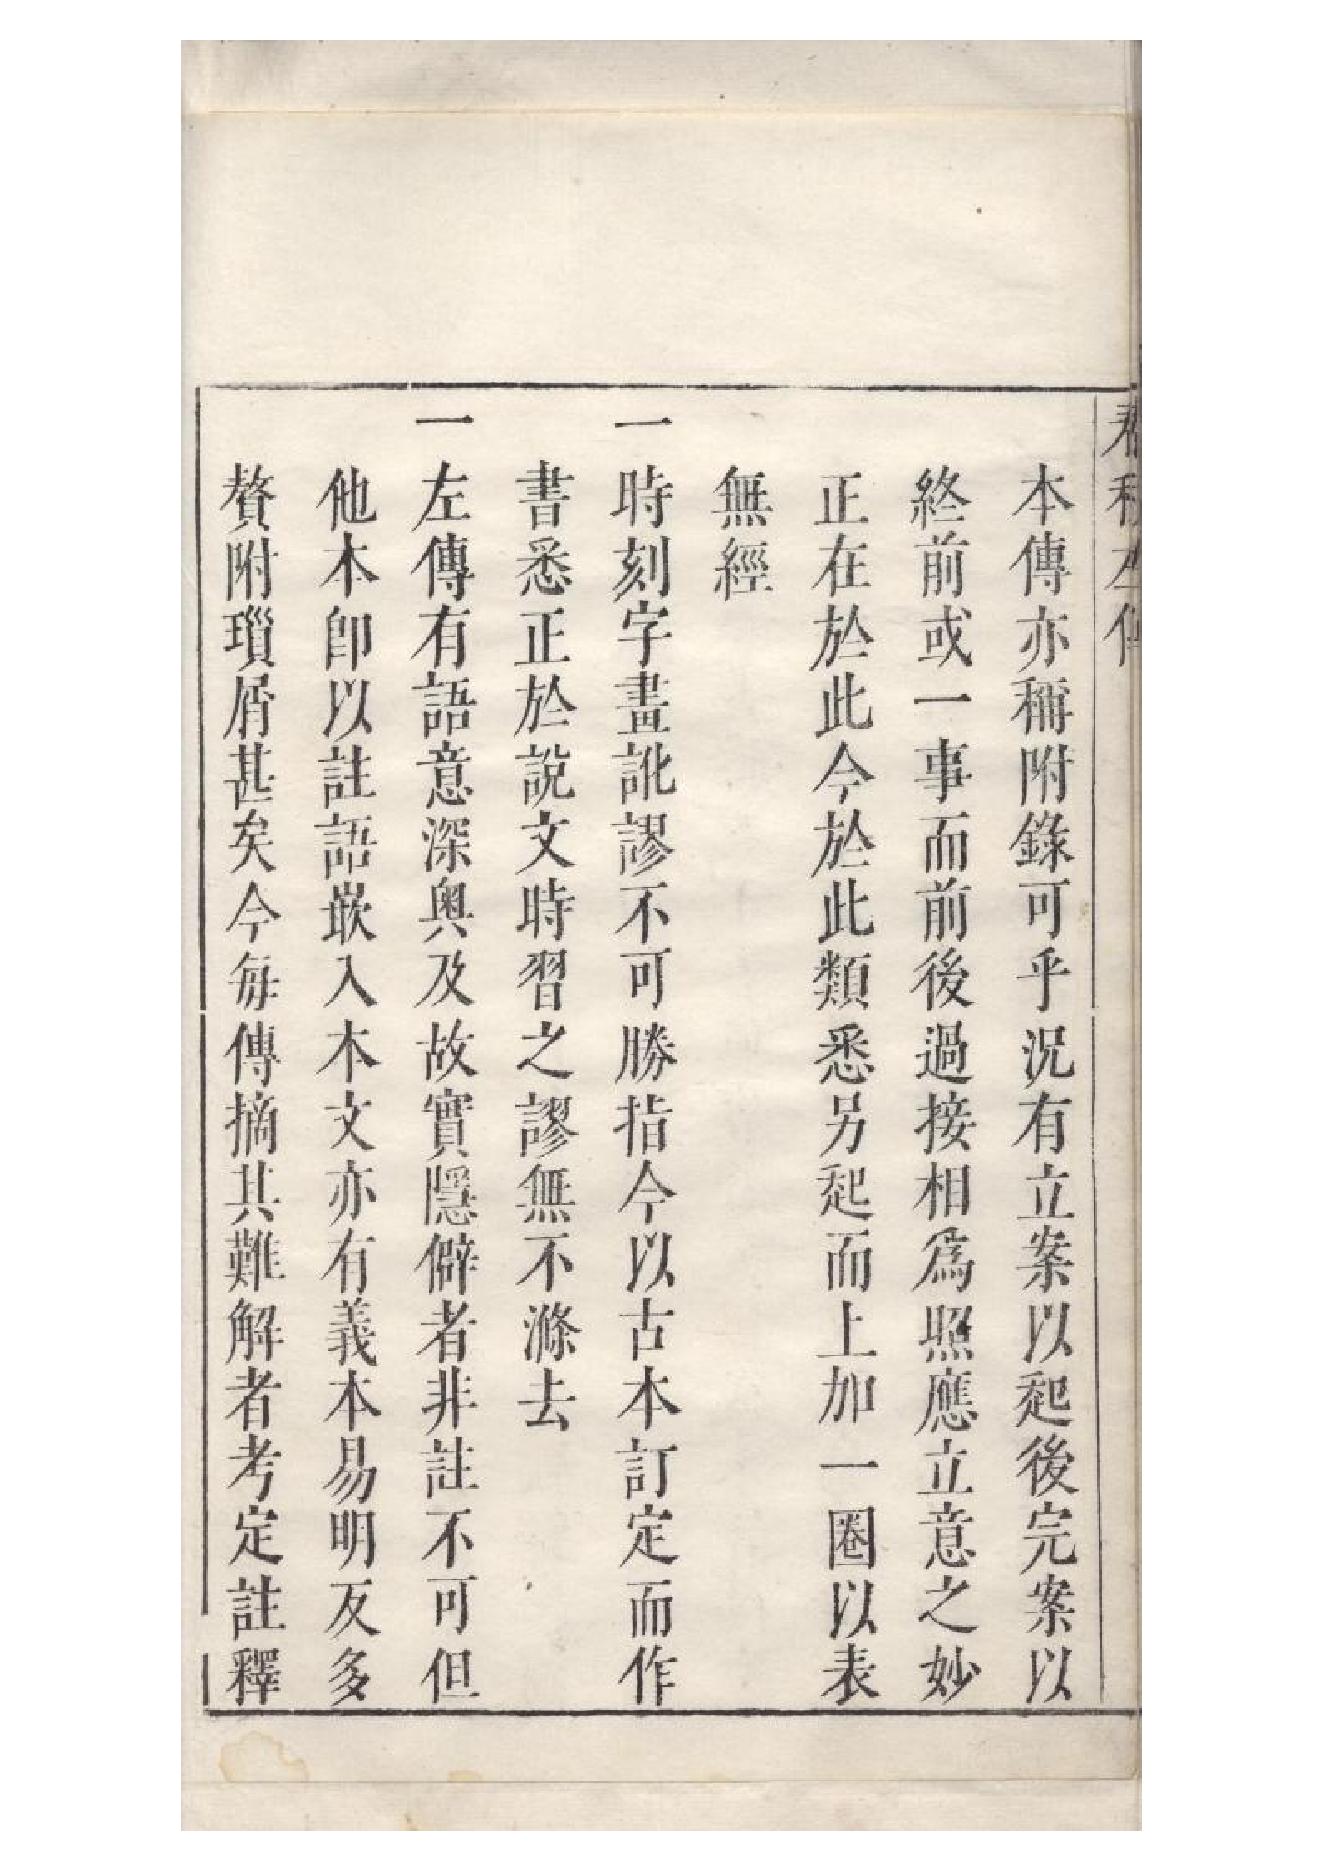 春秋左傳
本傳亦稱附錄可乎況有立案以起後完案以
終前或一事而前後過接相爲照應立意之妙
正在於此今於此類悉另起而上加一圈以表
無經
一時刻字畫訛謬不可勝指今以古本訂定而作
書悉正於說文時習之謬無不滌去
一左傳有語意深奧及故實隱僻者非註不可但
他本卽以註語嵌入本文亦有義本易明反多
贅附瑣屑甚矣今每傳摘其難解者考定註釋